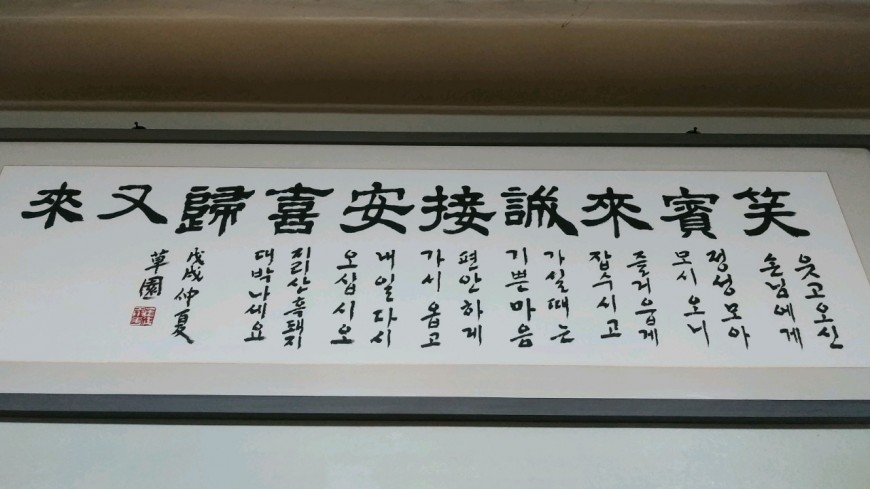 笑賓來誠接安喜歸又來
웃고오신
손님에게
정성모아
모시오니
즐거웁게
잡수시고
가실때는
기쁜마음
편안하게
가시옵고
내일다시
오십시오
지리산흑돼지
대박나세요
戊戌仲夏
草園